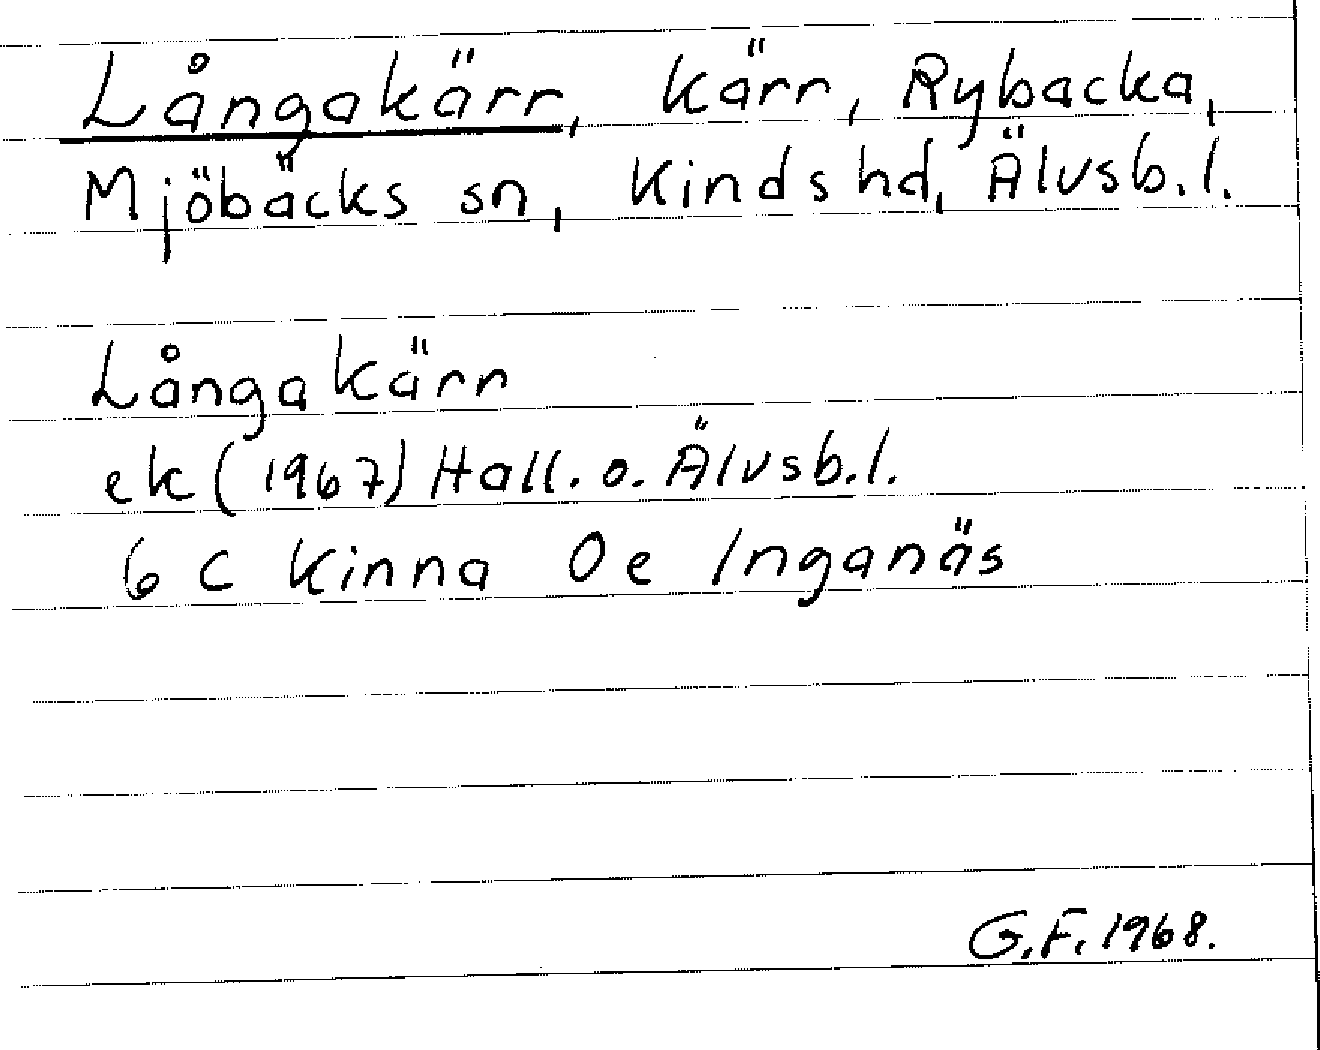 Långakärr, kärr, Rybacka,
Mjöbäcks sn, Kinds hd, Älvsb.l.
Långakärr
ek (1967) Hall. o. Älvsb.l.
6 C Kinna 0e Inganäs
G.F. 1968.